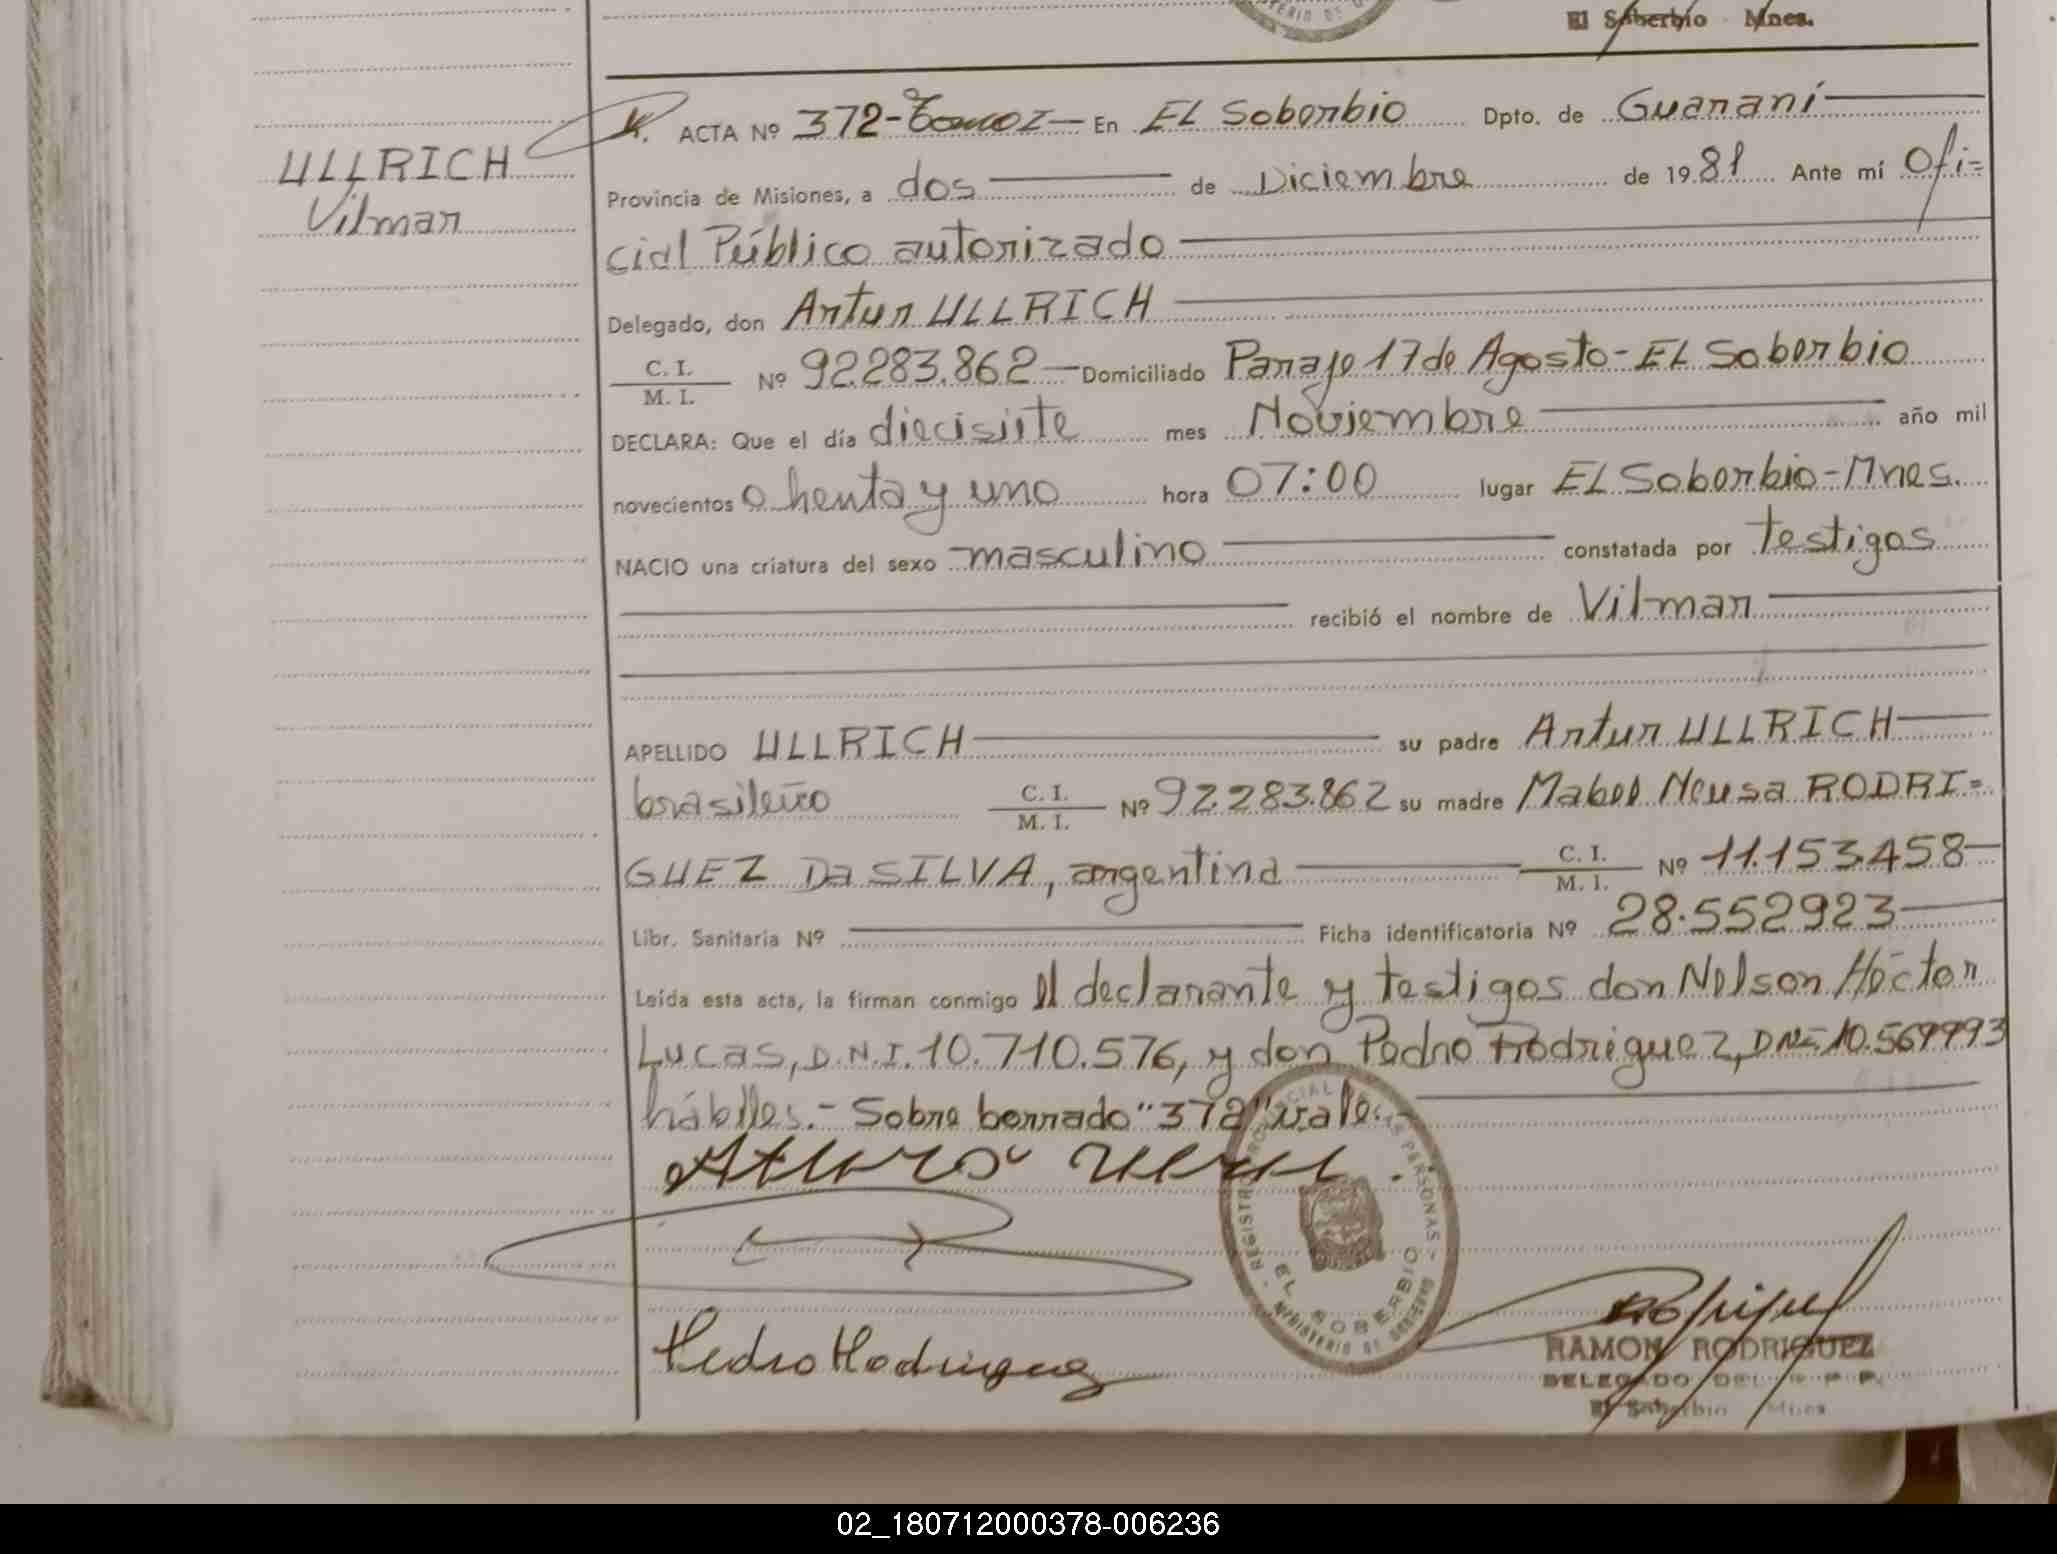 El Soberbio Mnes.
ACTA Nº 372-Tomo I- En EL Soberbio Dpto. de Guaraní
ULLRICH
Vilmar
Provincia de Misiones, a dos de Diciembre de 1981 Ante mí Ofi=
cial Público autorizado
Delegado, don Artur ULLRICH
C. I.
M. I. Nº 92.283.862 - Domiciliado Paraje 17 de Agosto - EL Soberbio
DECLARA: Que el día diecisiite mes Noviembre año mil
novecientos ohenta y uno hora 07:00 lugar EL Soberbio-Mnes.
NACIO una criatura del sexo masculino constatada por testigos
recibió el nombre de Vilmar
APELLIDO ULLRICH su padre Artur ULLRICH
brasileño C. I.
M. I. Nº 92.283.862 su madre Mabel Neusa RODRI=
GUEZ Da SILVA, argentina C. I.
M. I. Nº 11.153.458
Libr. Sanitaria Nº Ficha identificatoria Nº 28.552923
Leída esta acta, la firman conmigo el declarante y testigos don Nelson Héctor
Lucas, D.N.I. 10.710.576, y don Pedro Rodriguez, DNI 10.569993
hábiles.- Sobre borrado "372" vale.-
REGISTRO PROVINCIAL DE LAS PERSONAS
EL SOBERBIO
MINISTERIO DE GOBIERNO
Pedro Rodriguez
RAMON RODRIGUEZ
DELEGADO DEL R P P
El Soberbio Mnes
02_180712000378-006236